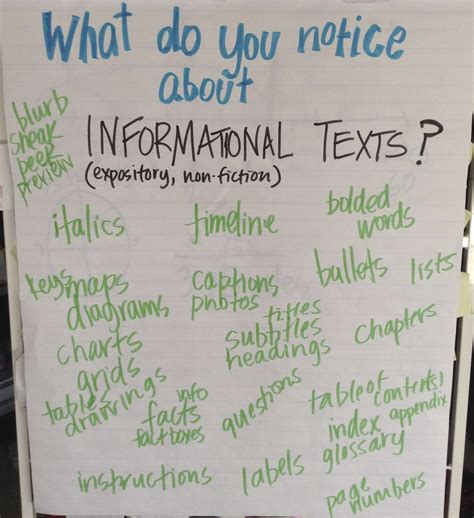 What do you notice
about
INFORMATIONAL TEXTS?
(expository, non-fiction)
blurb
sneak
peek
preview
italics
timeline
bolded
words
keys maps
diagrams
charts
grids
tables
drawings
captions
photos
titles
subtitles
headings
bullets
lists
chapters
info
facts
fact boxes
questions
table of contents)
index appendix
glossary
instructions
labels
page
numbers